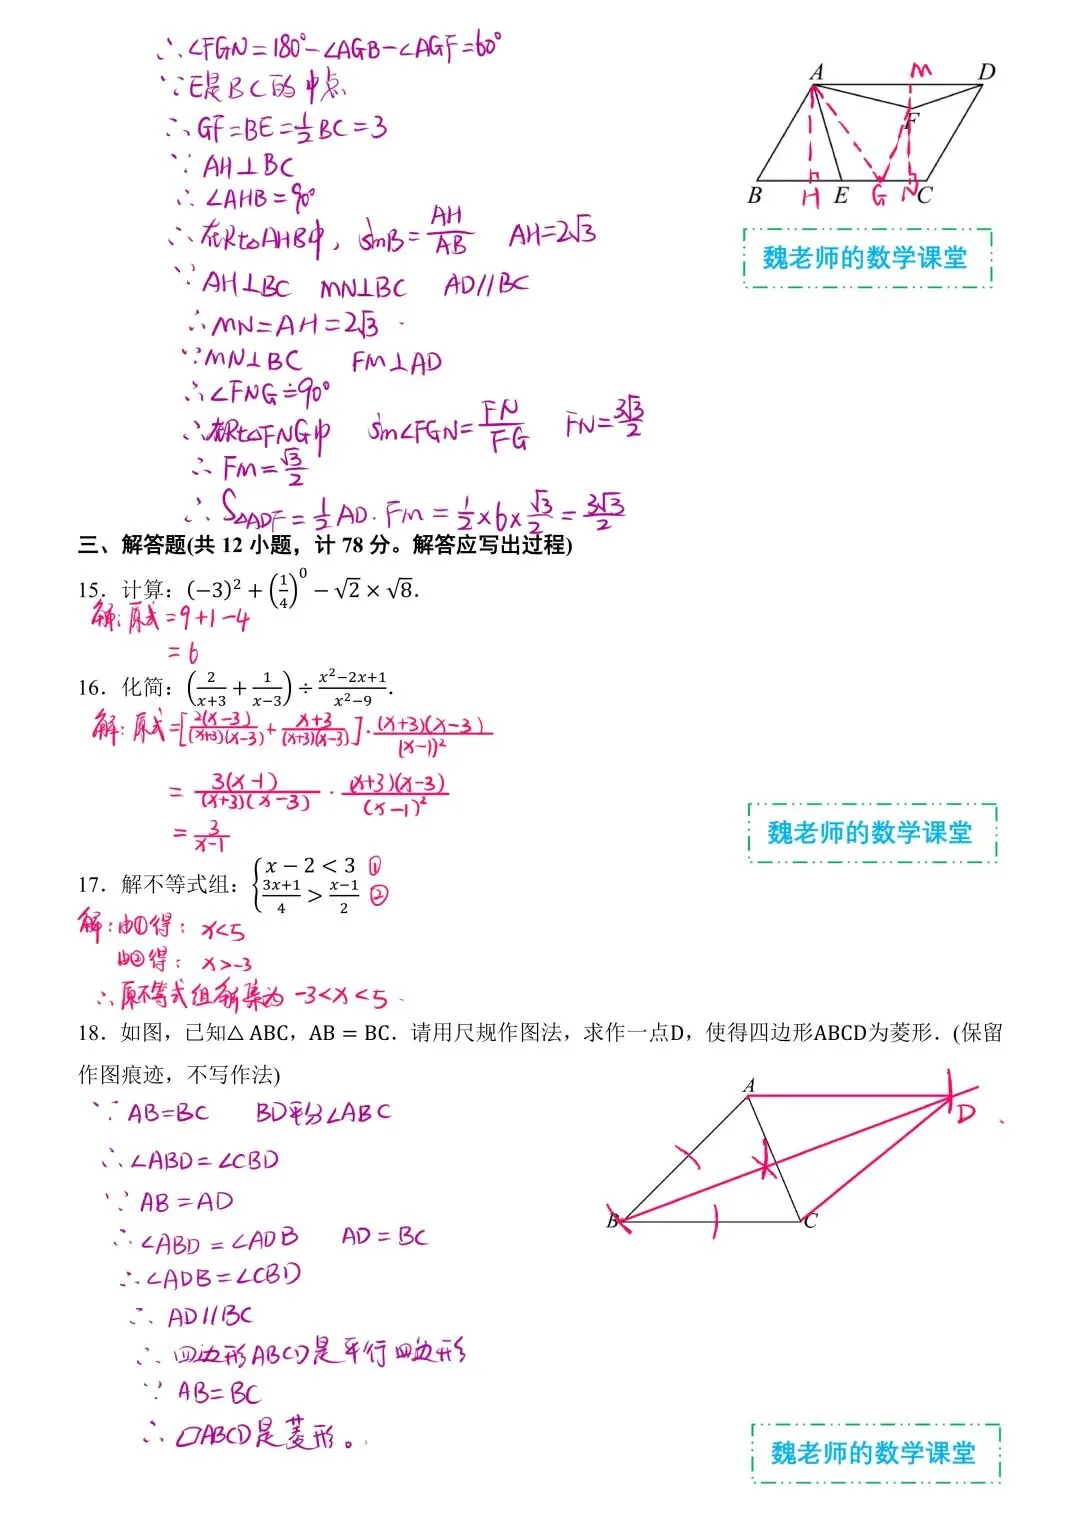 ∴∠FGN=180°-∠AGB-∠AGF=60°
∵E是BC的中点
∴GF=BE=1/2BC=3
∵AH⊥BC
∴∠AHB=90°
∴在Rt△AHB中，sinB=AH/AB AH=2√3
∵AH⊥BC MN⊥BC AD//BC
∴MN=AH=2√3
∵MN⊥BC FM⊥AD
∴∠FNG=90°
∴在Rt△FNG中 sin∠FGN=FN/FG FN=3√3/2
∴FM=√3/2
∴S△ADF=1/2AD·FM=1/2×6×√3/2=3√3/2
A M D
F
B H E G N C
魏老师的数学课堂
三、解答题(共 12 小题，计 78 分。解答应写出过程)
15．计算：(−3)²+(1/4)⁰−√2×√8.
解：原式=9+1-4
=6
16．化简：(2/(x+3)+1/(x−3))÷(x²−2x+1)/(x²−9).
解：原式=[2(x-3)/((x+3)(x-3))+(x+3)/((x+3)(x-3))]·(x+3)(x-3)/(x-1)²
=3(x-1)/((x+3)(x-3))·(x+3)(x-3)/(x-1)²
=3/(x-1)
魏老师的数学课堂
17．解不等式组：{x−2<3 ①
(3x+1)/4>(x−1)/2 ②
解：由①得：x<5
由②得：x>-3
∴原不等式组解集为 -3<x<5.
18．如图，已知△ABC，AB=BC．请用尺规作图法，求作一点D，使得四边形ABCD为菱形．(保留
作图痕迹，不写作法)
∵AB=BC BD平分∠ABC
∴∠ABD=∠CBD
∵AB=AD
∴∠ABD=∠ADB AD=BC
∴∠ADB=∠CBD
∴AD//BC
∴四边形ABCD是平行四边形
∵AB=BC
∴▱ABCD是菱形。
A
D
B C
魏老师的数学课堂